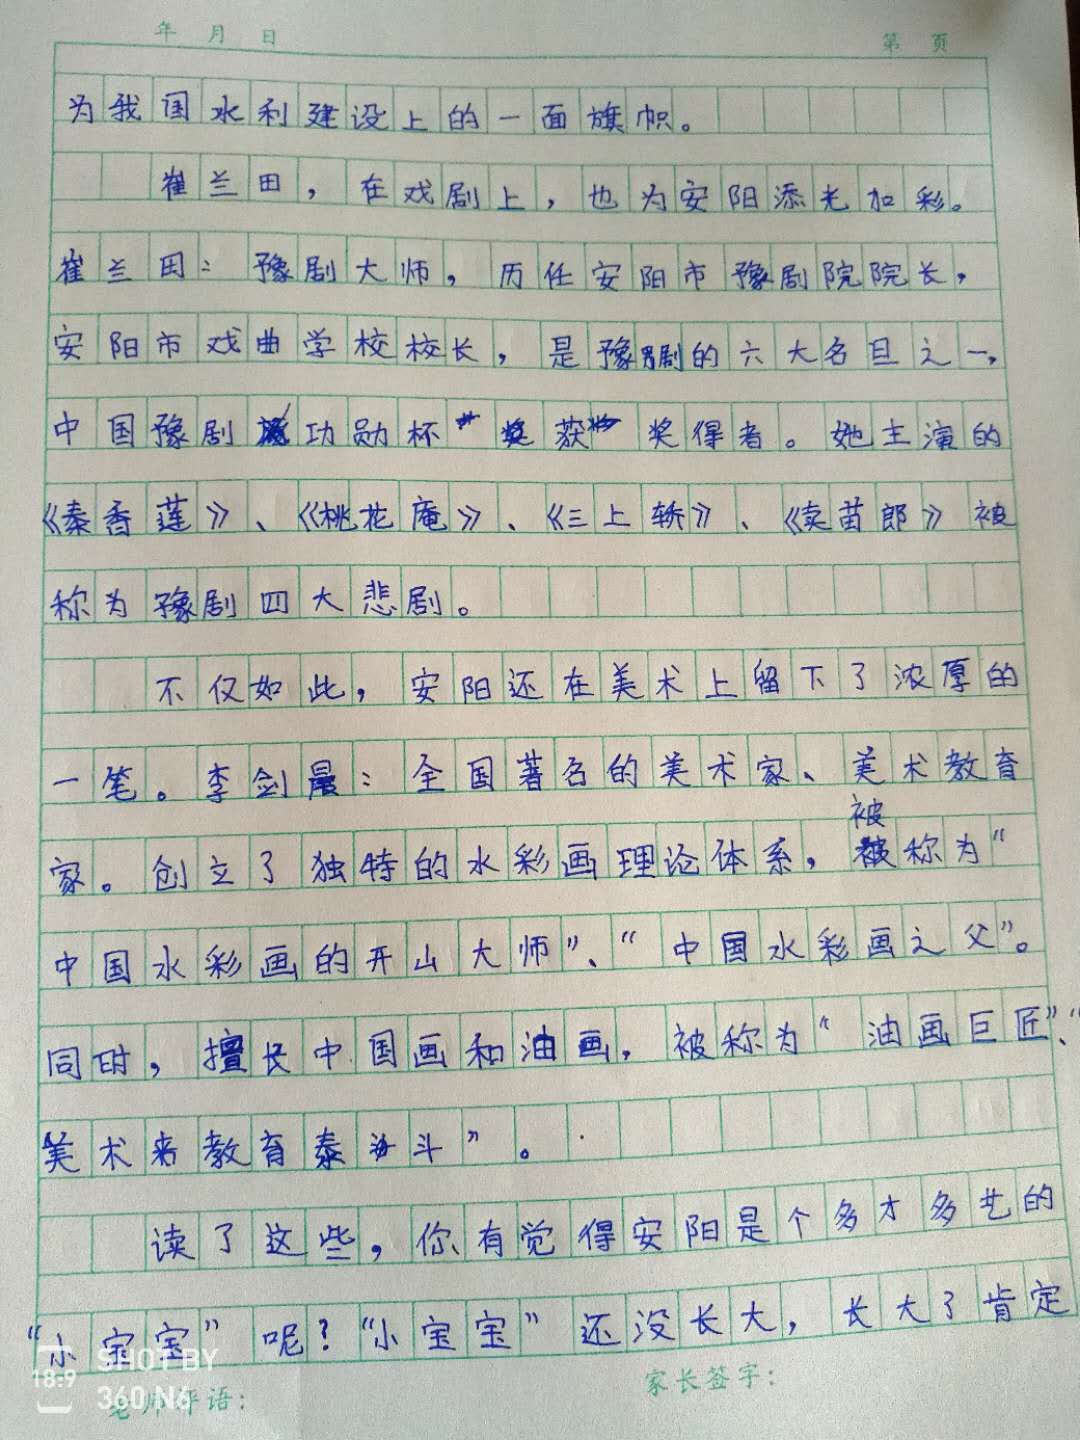 年 月 日
第 页
为我国水利建设上的一面旗帜。
崔兰田，在戏剧上，也为安阳添光加彩。
崔兰田：豫剧大师，历任安阳市豫剧院院长，
安阳市戏曲学校校长，是豫剧的六大名旦之一，
中国豫剧功勋杯奖获奖得者。她主演的
《秦香莲》、《桃花庵》、《三上轿》、《卖苗郎》被
称为豫剧四大悲剧。
不仅如此，安阳还在美术上留下了浓厚的
一笔。李剑晨：全国著名的美术家、美术教育
被
家。创立了独特的水彩画理论体系，被称为“
中国水彩画的开山大师”、“中国水彩画之父”。
同时，擅长中国画和油画，被称为“油画巨匠”、“
美术教育泰斗”。
读了这些，你有觉得安阳是个多才多艺的
“小宝宝”呢？“小宝宝”还没长大，长大了肯定
家长签字：
老师评语：
SHOT BY
18:9
360 N6